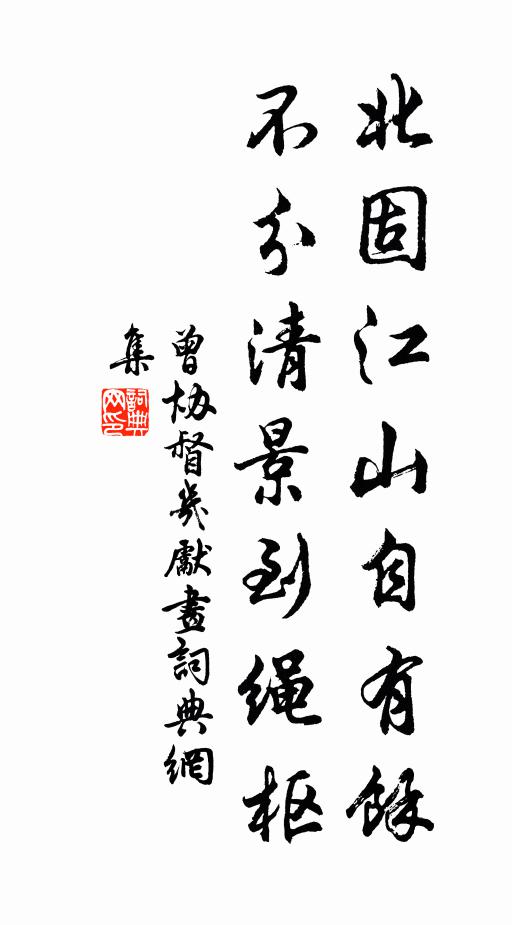 北固江山自有餘
不分清景到绳枢
曾协督幾獻畫詞典網
集
詞典
网印